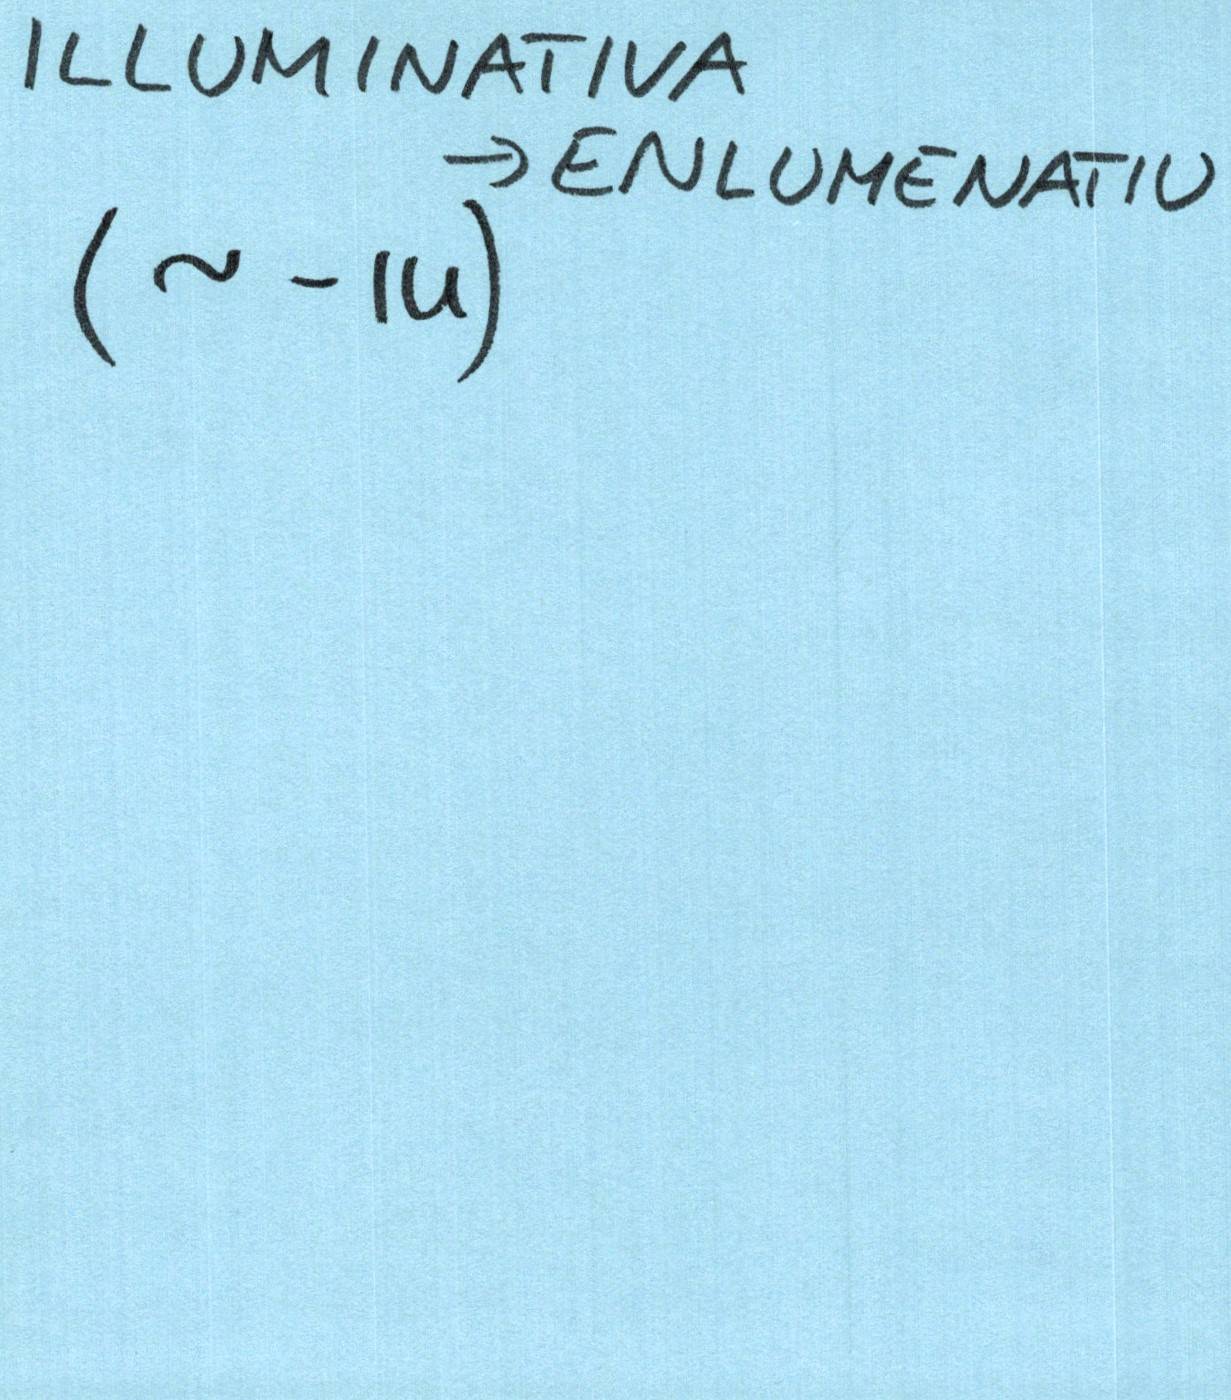 ILLUMINATIVA
→ ENLUMENATIU
(~ -IU)